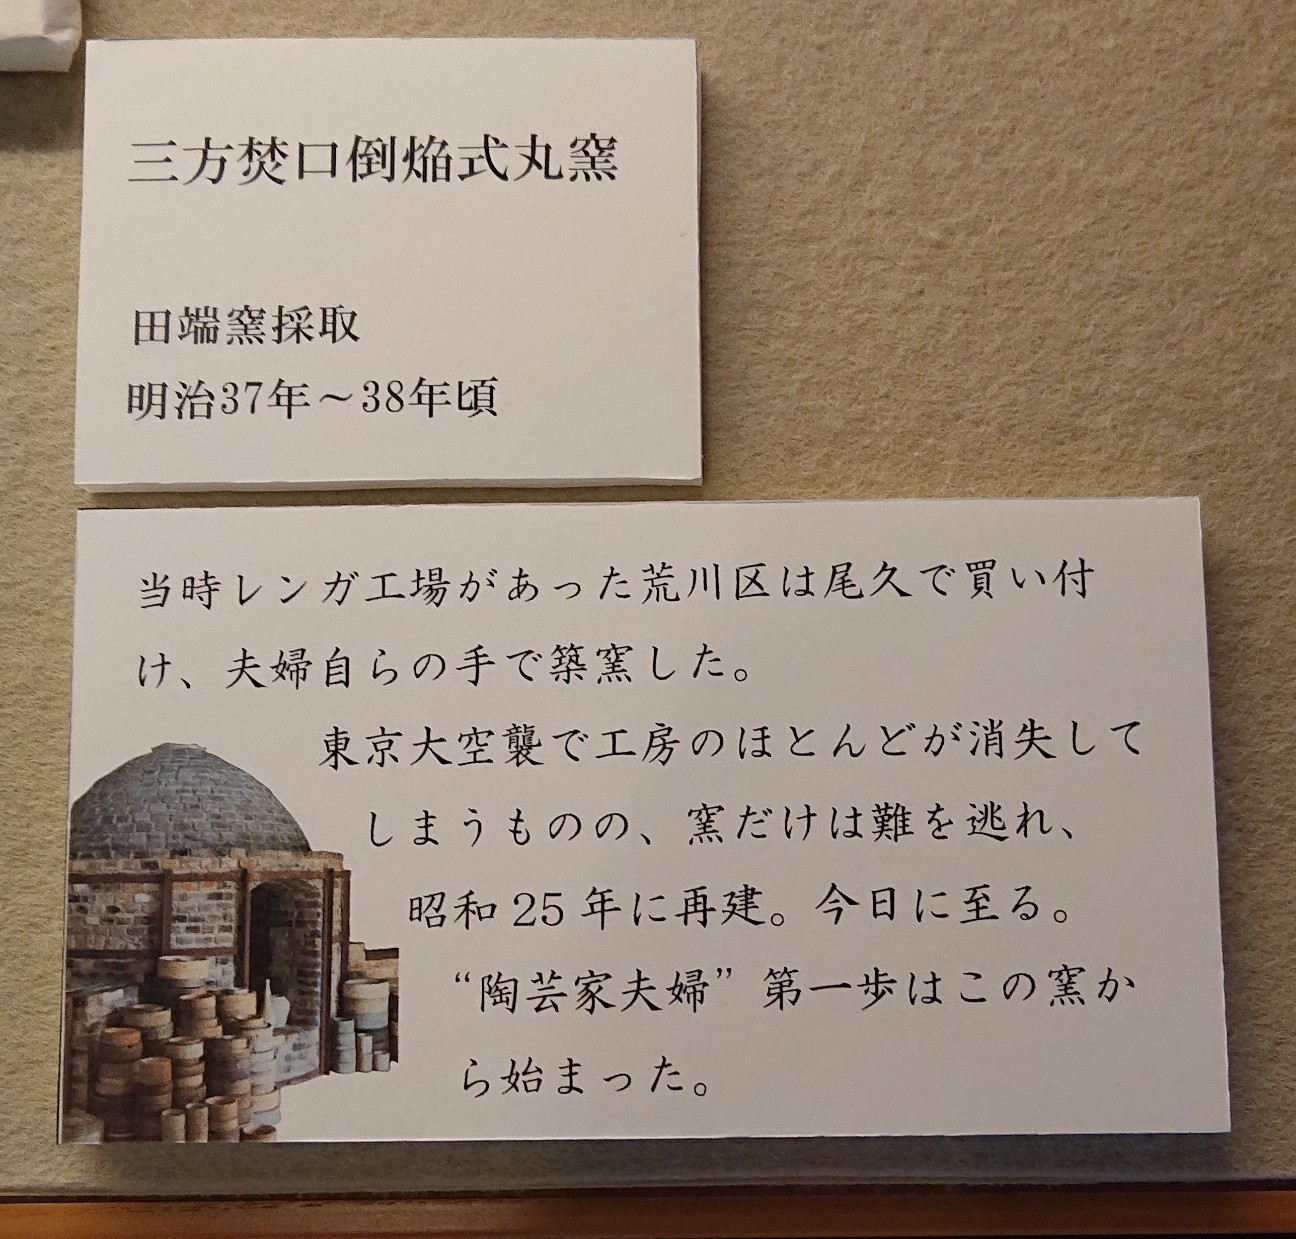 三方焚口倒焔式丸窯
田端窯採取
明治37年～38年頃
当時レンガ工場があった荒川区は尾久で買い付
け、夫婦自らの手で築窯した。
東京大空襲で工房のほとんどが消失して
しまうものの、窯だけは難を逃れ、
昭和25年に再建。今日に至る。
“陶芸家夫婦”第一歩はこの窯か
ら始まった。